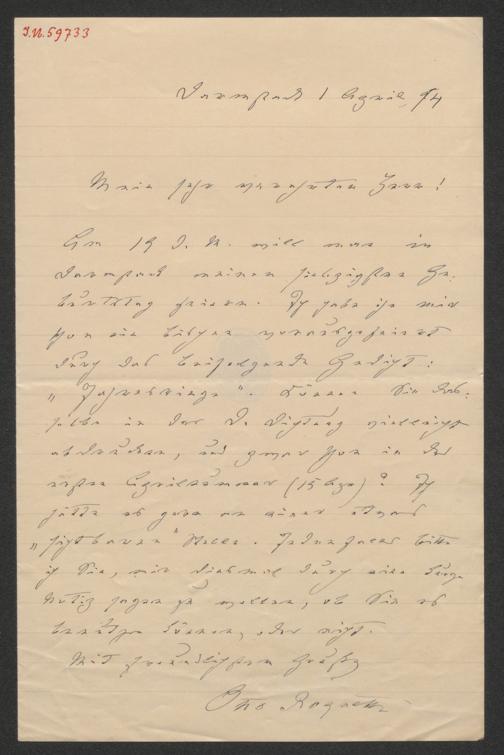 I.N. 59733
Darmstadt 1 April, 94
Mein sehr verehrter Herr!
Am 19 d. M. will man in
Darmstadt meinen siebzigsten Ge-
burtstag feiern. Ich habe ihn mir
schon ein bischen vorausgefeiert
durch das beifolgende Gedicht:
„Jahresringe". Können Sie das-
selbe in der D. Dichtung vielleicht
abdrucken, und zwar schon in der
ersten Aprilnummer (15 Apr)? Ich
hätte es gern an einer etwas
„sichtbaren" Stelle. Jedenfalls bitte
ich Sie, mir diesmal durch eine kurze
Notiz sagen zu wollen, ob Sie es
benützen können, oder nicht.
Mit freundlichstem Gruß
Otto Roquette